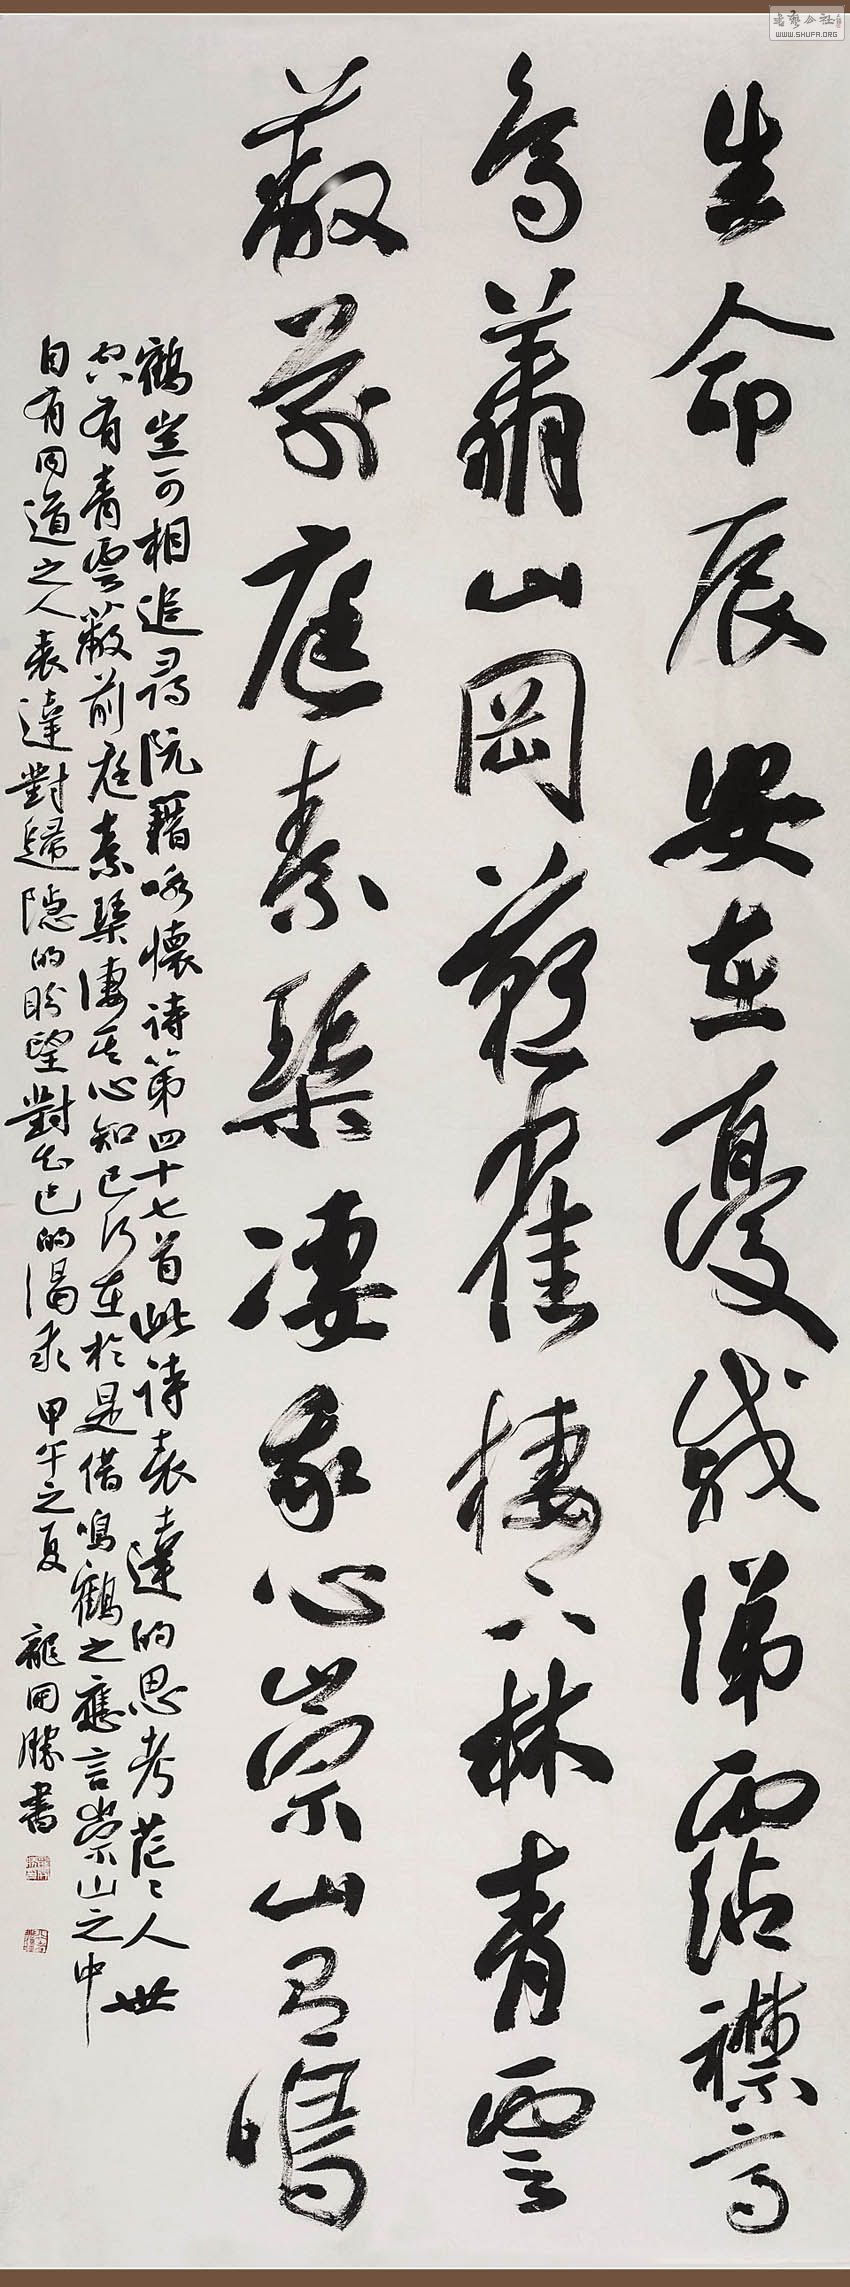 生命辰安在憂戚涕霑襟高
鳥翔山岡燕雀棲下林青雲
蔽前庭素琴凄我心崇山有鳴
鶴豈可相追尋阮籍咏懷诗第四十七首此诗表達的思考茫〻人世
只有青雲蔽前庭素琴凄其心知己何在於是借鳴鶴之應言崇山之中
自有同道之人表達對歸隱的盼望對知己的渴求甲午之夏龍開勝書
书艺公社
WWW.SHUFA.ORG